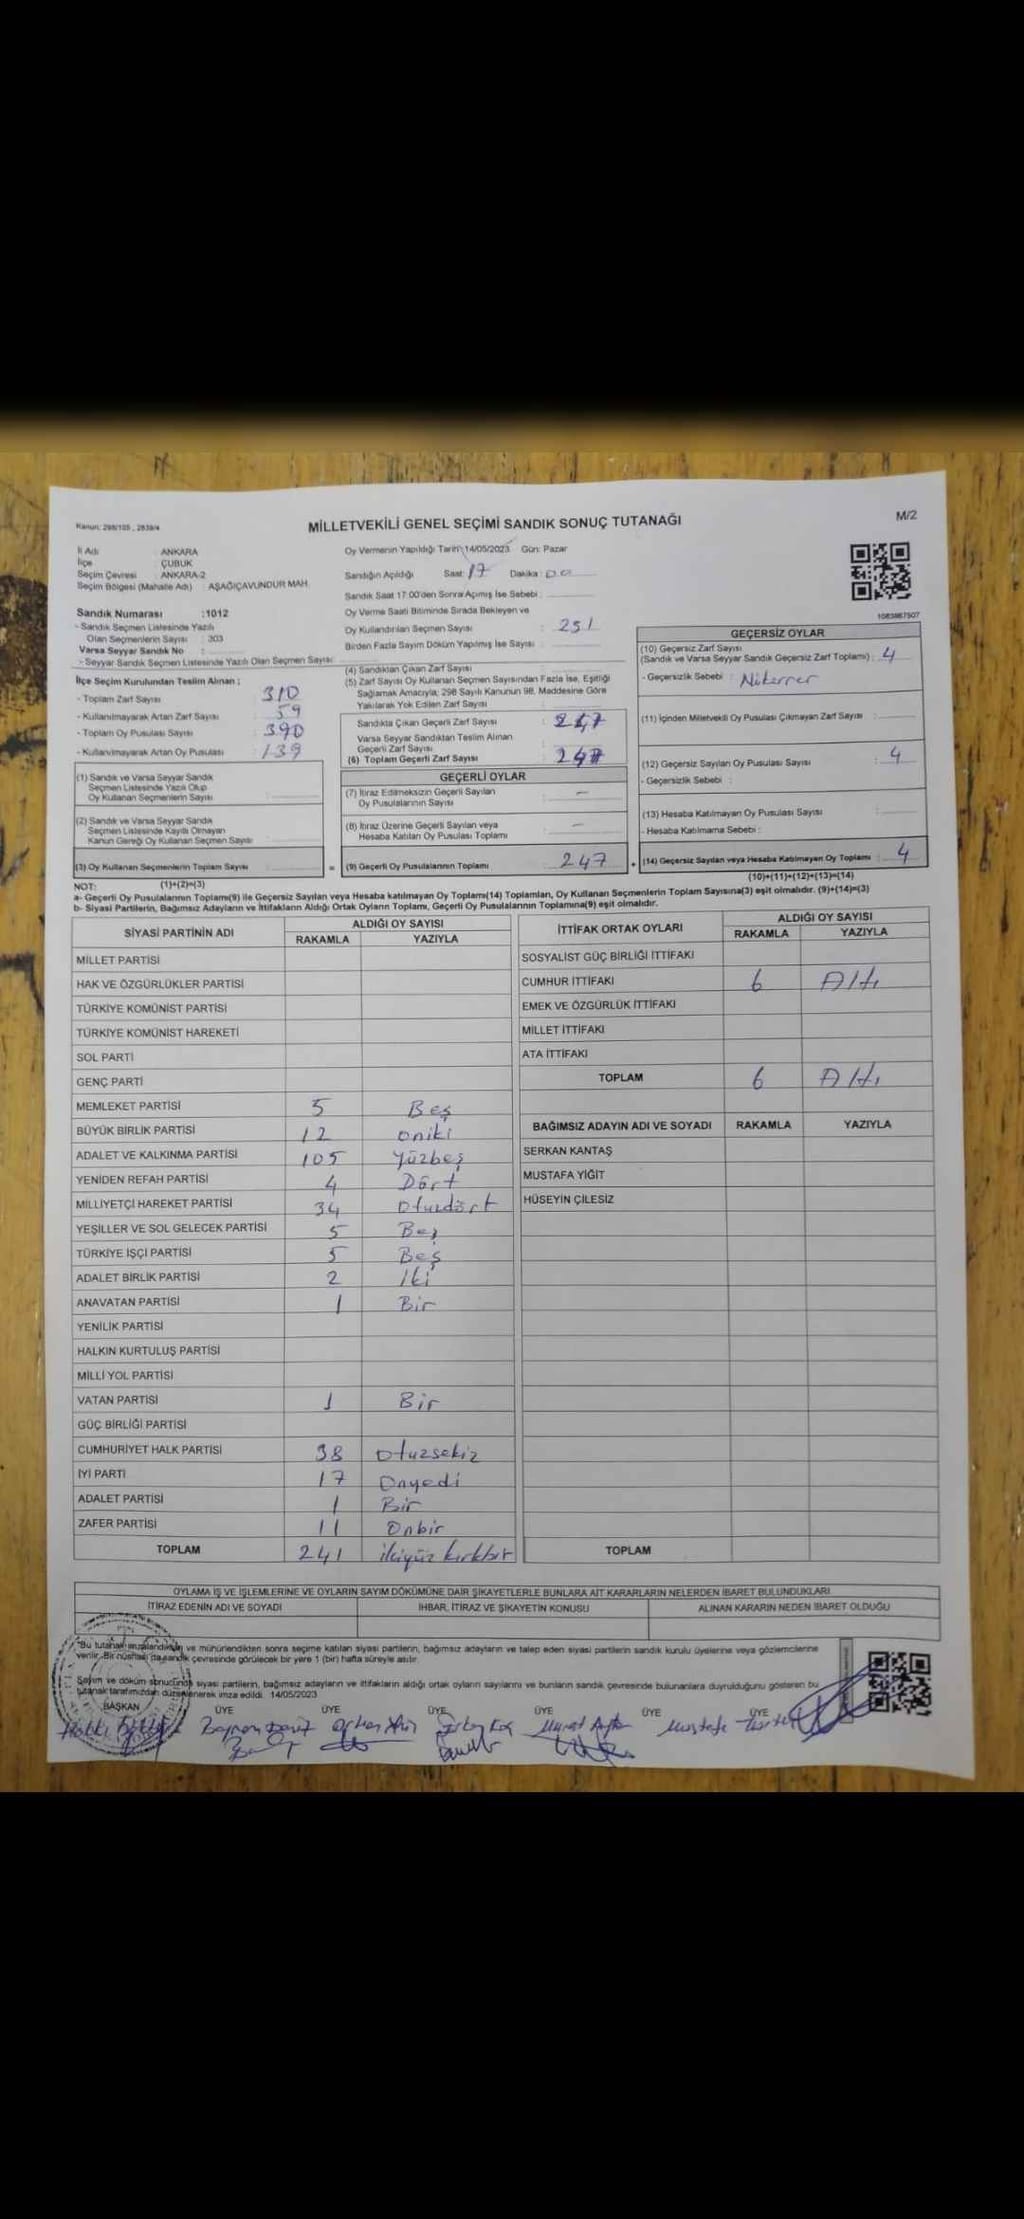 Kanun: 298/105 , 2839/4
MİLLETVEKİLİ GENEL SEÇİMİ SANDIK SONUÇ TUTANAĞI
M/2
İl Adı : ANKARA
İlçe : ÇUBUK
Seçim Çevresi : ANKARA-2
Seçim Bölgesi (Mahalle Adı) : AŞAĞIÇAVUNDUR MAH.
Sandık Numarası :1012
- Sandık Seçmen Listesinde Yazılı
Olan Seçmenlerin Sayısı : 303
Varsa Seyyar Sandık No :
- Seyyar Sandık Seçmen Listesinde Yazılı Olan Seçmen Sayısı:
İlçe Seçim Kurulundan Teslim Alınan ;
- Toplam Zarf Sayısı : 310
- Kullanılmayarak Artan Zarf Sayısı : 59
- Toplam Oy Pusulası Sayısı : 390
- Kullanılmayarak Artan Oy Pusulası : 139
(1) Sandık ve Varsa Seyyar Sandık
Seçmen Listesinde Yazılı Olup
Oy Kullanan Seçmenlerin Sayısı :
(2) Sandık ve Varsa Seyyar Sandık
Seçmen Listesinde Kayıtlı Olmayan
Kanun Gereği Oy Kullanan Seçmen Sayısı :
(3) Oy Kullanan Seçmenlerin Toplam Sayısı :
Oy Vermenin Yapıldığı Tarih: 14/05/2023 Gün: Pazar
Sandığın Açıldığı Saat: 17 Dakika : 00
Sandık Saat 17:00'den Sonra Açılmış İse Sebebi :
Oy Verme Saati Bitiminde Sırada Bekleyen ve
Oy Kullandırılan Seçmen Sayısı : 251
Birden Fazla Sayım Döküm Yapılmış İse Sayısı :
(4) Sandıktan Çıkan Zarf Sayısı
(5) Zarf Sayısı Oy Kullanan Seçmen Sayısından Fazla İse, Eşitliği
Sağlamak Amacıyla; 298 Sayılı Kanunun 98. Maddesine Göre
Yakılarak Yok Edilen Zarf Sayısı
Sandıkta Çıkan Geçerli Zarf Sayısı : 247
Varsa Seyyar Sandıktan Teslim Alınan
Geçerli Zarf Sayısı
(6) Toplam Geçerli Zarf Sayısı : 247
GEÇERLİ OYLAR
(7) İtiraz Edilmeksizin Geçerli Sayılan
Oy Pusulalarının Sayısı : –
(8) İtiraz Üzerine Geçerli Sayılan veya
Hesaba Katılan Oy Pusulası Toplamı : –
= (9) Geçerli Oy Pusulalarının Toplamı : 247
1083867507
GEÇERSİZ OYLAR
(10) Geçersiz Zarf Sayısı
(Sandık ve Varsa Seyyar Sandık Geçersiz Zarf Toplamı) : 4
- Geçersizlik Sebebi :
(11) İçinden Milletvekili Oy Pusulası Çıkmayan Zarf Sayısı :
(12) Geçersiz Sayılan Oy Pusulası Sayısı : 4
- Geçersizlik Sebebi :
(13) Hesaba Katılmayan Oy Pusulası Sayısı :
- Hesaba Katılmama Sebebi :
+ (14) Geçersiz Sayılan veya Hesaba Katılmayan Oy Toplamı : 4
NOT: (1)+(2)=(3)
(10)+(11)+(12)+(13)=(14)
a- Geçerli Oy Pusulalarının Toplamı(9) ile Geçersiz Sayılan veya Hesaba katılmayan Oy Toplamı(14) Toplamları, Oy Kullanan Seçmenlerin Toplam Sayısına(3) eşit olmalıdır. (9)+(14)=(3)
b- Siyasi Partilerin, Bağımsız Adayların ve İttifakların Aldığı Ortak Oyların Toplamı, Geçerli Oy Pusulalarının Toplamına(9) eşit olmalıdır.
SİYASİ PARTİNİN ADI ALDIĞI OY SAYISI
RAKAMLA YAZIYLA
MİLLET PARTİSİ
HAK VE ÖZGÜRLÜKLER PARTİSİ
TÜRKİYE KOMÜNİST PARTİSİ
TÜRKİYE KOMÜNİST HAREKETİ
SOL PARTİ
GENÇ PARTİ
MEMLEKET PARTİSİ 5 Beş
BÜYÜK BİRLİK PARTİSİ 12 oniki
ADALET VE KALKINMA PARTİSİ 105 Yüzbeş
YENİDEN REFAH PARTİSİ 4 Dört
MİLLİYETÇİ HAREKET PARTİSİ 34 Otuzdört
YEŞİLLER VE SOL GELECEK PARTİSİ 5 Beş
TÜRKİYE İŞÇİ PARTİSİ 5 Beş
ADALET BİRLİK PARTİSİ 2 İki
ANAVATAN PARTİSİ 1 Bir
YENİLİK PARTİSİ
HALKIN KURTULUŞ PARTİSİ
MİLLİ YOL PARTİSİ
VATAN PARTİSİ 1 Bir
GÜÇ BİRLİĞİ PARTİSİ
CUMHURİYET HALK PARTİSİ 38 Otuzsekiz
İYİ PARTİ 17 Onyedi
ADALET PARTİSİ 1 Bir
ZAFER PARTİSİ 11 Onbir
TOPLAM 241 ikiyüz kırkbir
İTTİFAK ORTAK OYLARI ALDIĞI OY SAYISI
RAKAMLA YAZIYLA
SOSYALİST GÜÇ BİRLİĞİ İTTİFAKI
CUMHUR İTTİFAKI 6 Altı
EMEK VE ÖZGÜRLÜK İTTİFAKI
MİLLET İTTİFAKI
ATA İTTİFAKI
TOPLAM 6 Altı
BAĞIMSIZ ADAYIN ADI VE SOYADI RAKAMLA YAZIYLA
SERKAN KANTAŞ
MUSTAFA YİĞİT
HÜSEYİN ÇİLESİZ
TOPLAM
OYLAMA İŞ VE İŞLEMLERİNE VE OYLARIN SAYIM DÖKÜMÜNE DAİR ŞİKAYETLERLE BUNLARA AİT KARARLARIN NELERDEN İBARET BULUNDUKLARI
İTİRAZ EDENİN ADI VE SOYADI İHBAR, İTİRAZ VE ŞİKAYETİN KONUSU ALINAN KARARIN NEDEN İBARET OLDUĞU
"Bu tutanak imzalandıktan ve mühürlendikten sonra seçime katılan siyasi partilerin, bağımsız adayların ve talep eden siyasi partilerin sandık kurulu üyelerine veya gözlemcilerine
verilir. Bir nüshası da sandık çevresinde görülecek bir yere 1 (bir) hafta süreyle asılır.
Sayım ve döküm sonucunda siyasi partilerin, bağımsız adayların ve ittifakların aldığı ortak oyların sayılarını ve bunların sandık çevresinde bulunanlara duyrulduğunu gösteren bu
tutanak tarafımızdan düzenlenerek imza edildi. 14/05/2023
BAŞKAN ÜYE ÜYE ÜYE ÜYE ÜYE ÜYE
Murat Mustafa